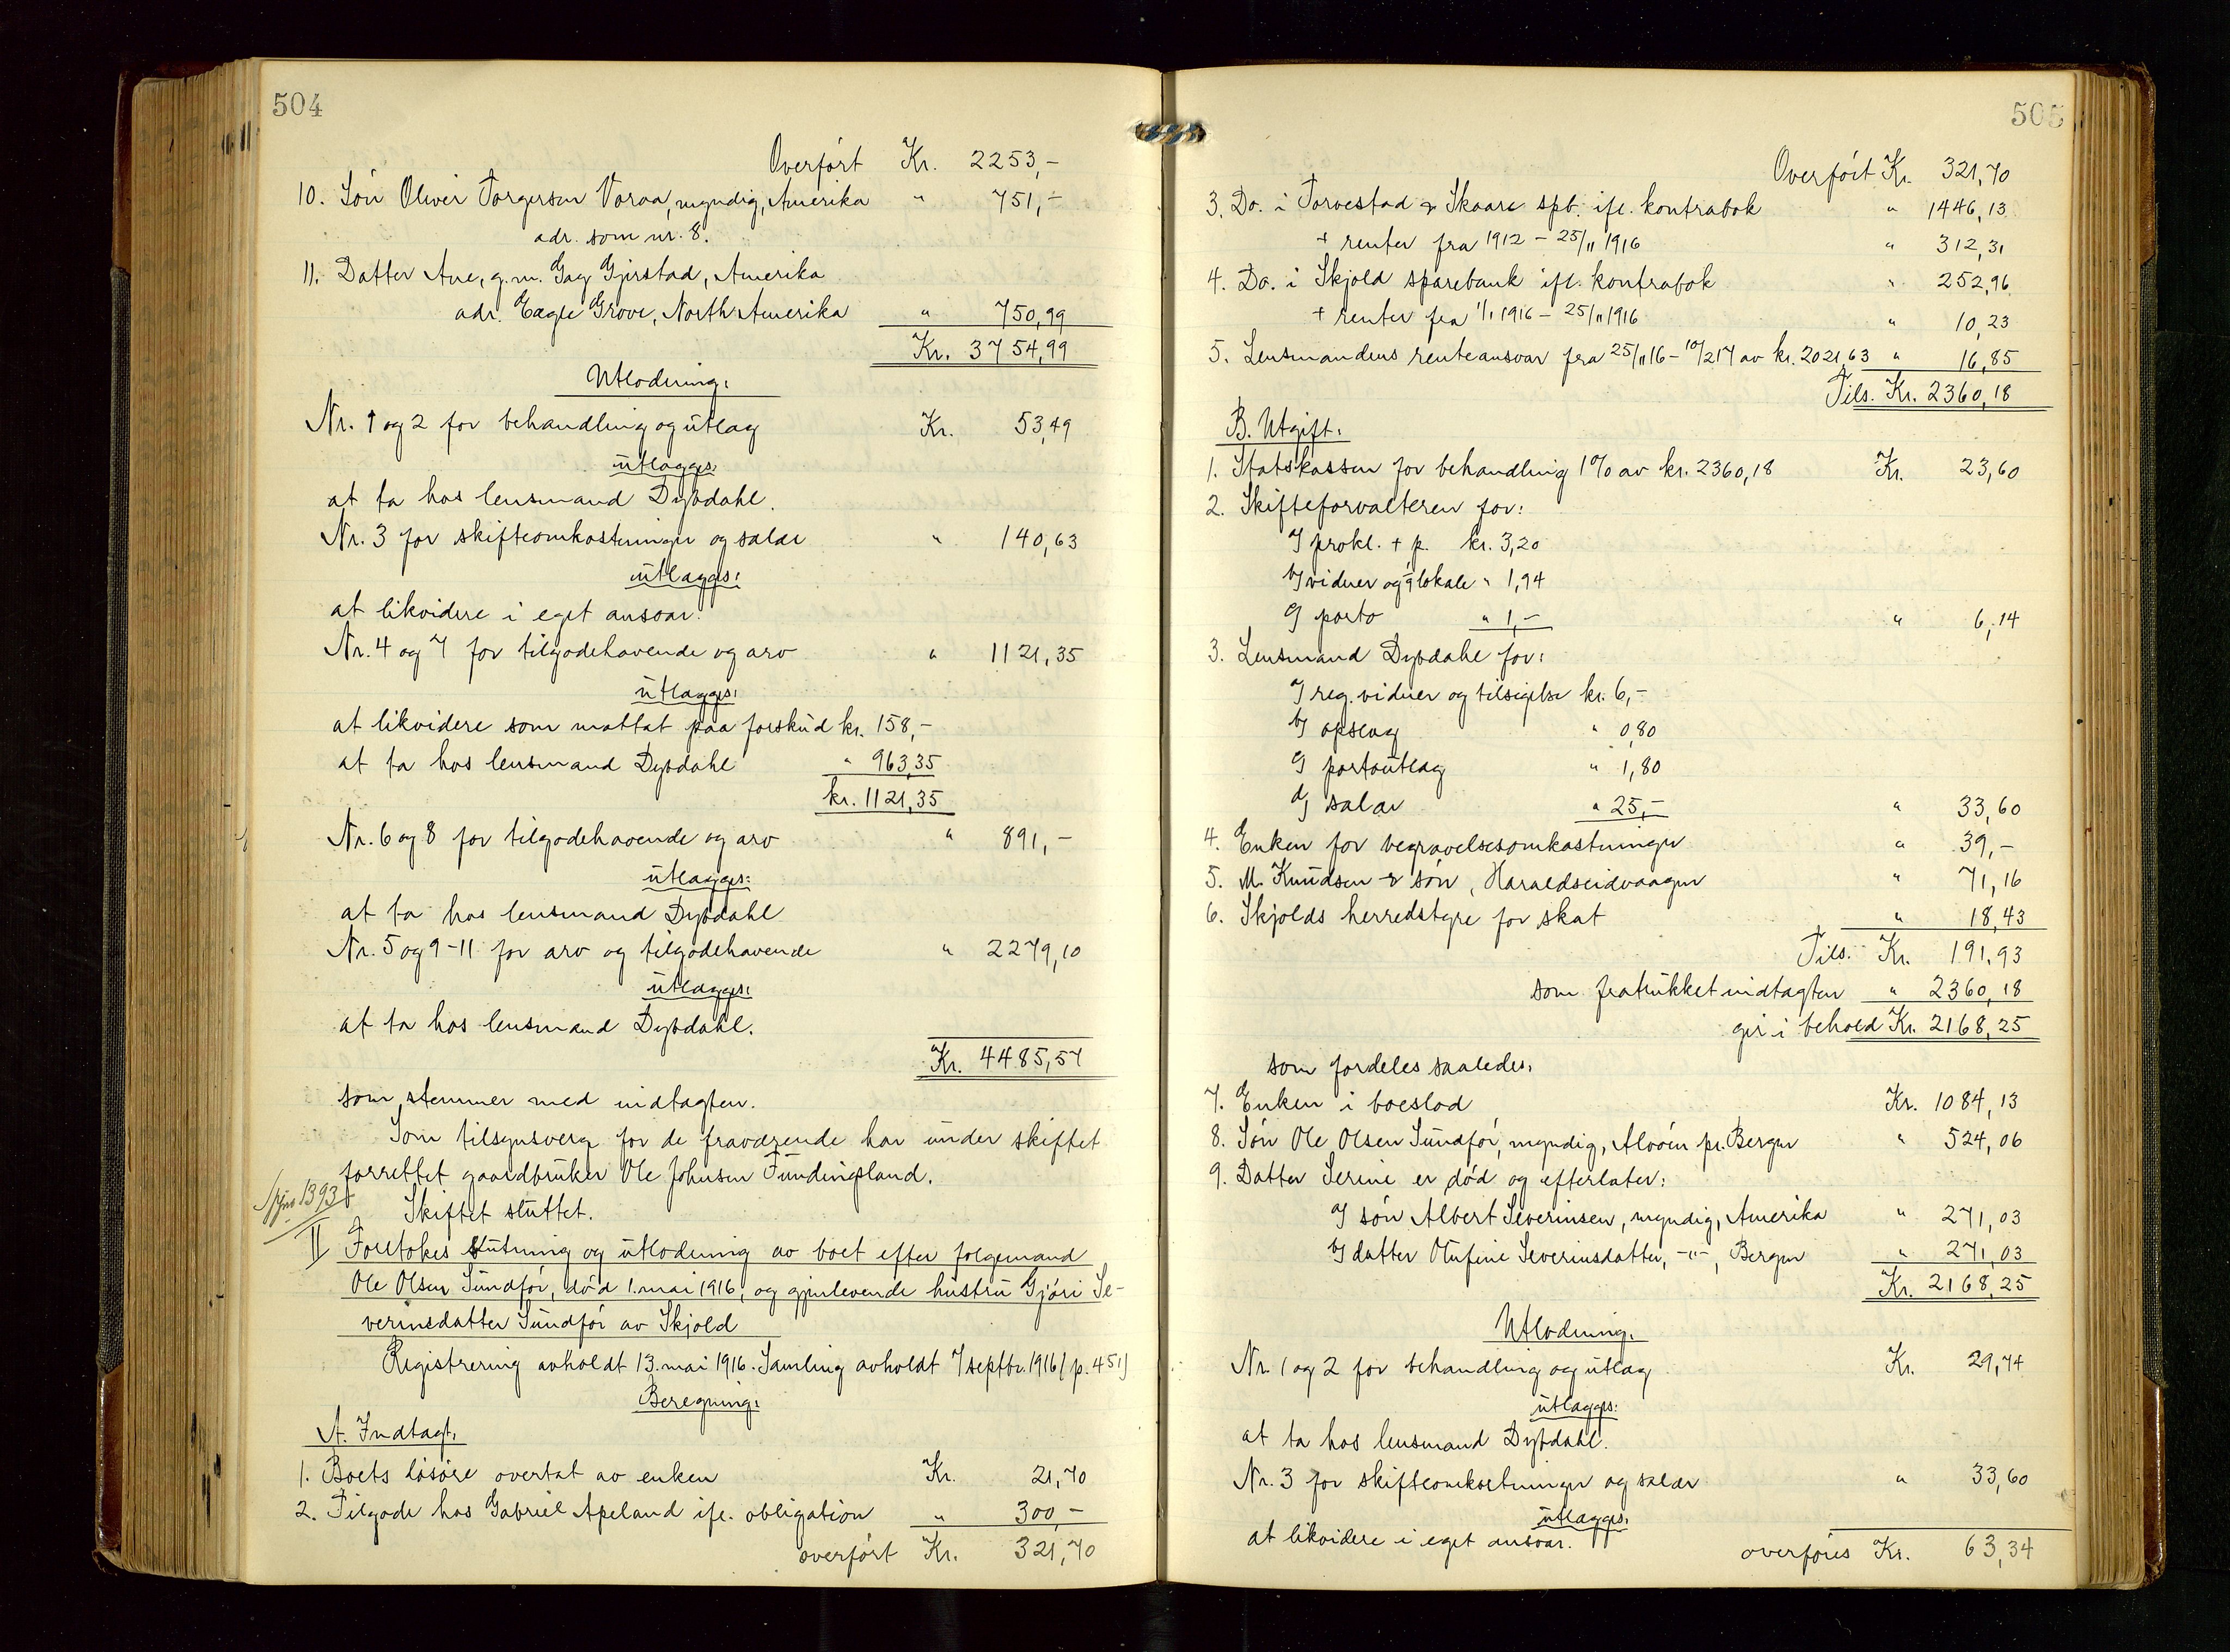 504
Overført Kr. 2253,-
10. Søn Oliver Torgersen Voraa, myndig, Amerika " 751,-
adr. som nr. 8.
11. Datter Ane, g.m. Gag Gjirstad, Amerika
adr. Eagle Grove, North Amerika " 750,99
Kr. 3754,99
Utlodning:
Nr. 1 og 2 for behandling og utlag Kr. 53,49
utlægges:
at ta hos lensmand Dybdahl.
Nr. 3 for skifteomkostninger og salær " 140,63
utlægges:
at likvidere i eget ansvar.
Nr. 4 og 7 for tilgodehavende og arv " 1121,35
utlægges:
at likvidere som mottat paa forskud kr. 158,-
at ta hos lensmand Dybdahl " 963,35
kr. 1121,35
Nr. 6 og 8 for tilgodehavende og arv " 891,-
utlægges:
at ta hos lensmand Dybdahl
Nr. 5 og 9-11 for arv og tilgodehavende " 2279,10
utlægges:
at ta hos lensmand Dybdahl.
Kr. 4485,57
som stemmer med indtægten.
Som tilsynsverg for de fraværende har under skiftet
forrettet gaardbruker Ole Johnsen Fundingsland.
Skiftet sluttet.
II Foretokes slutning og utlodning av boet efter følgemand
Ole Olsen Sundfør, død 1. mai 1916, og gjenlevende hustru Gjøri Se-
verinsdatter Sundfør av Skjold
Registrering avholdt 13. mai 1916. Samling avholdt 7 septbr. 1916 / p. 451)
Beregning:
A. Indtægt:
1. Boets løsøre overtat av enken Kr. 21,70
2. Tilgode hos Gabriel Apeland ifl. obligation " 300,-
overført Kr. 321,70
505
Overført Kr. 321,70
3. Do. i Torvestad & Skaare spb. ifl. kontrabok " 1446,13
+ renter fra 1912 - 25/11 1916 " 312,31
4. Do. i Skjold sparebank ifl. kontrabok " 252,96
+ renter fra 1/1 1916 - 25/11 1916 " 10,23
5. Lensmandens renteansvar fra 25/11 16 - 10/2 17 av kr. 2021,63 " 16,85
Tils. Kr. 2360,18
B. Utgift:
1. Statskassen for behandling 1% av kr. 2360,18 Kr. 23,60
2. Skifteforvalteren for:
a) prokl. + p. kr. 3,20
b) vidner og lokale " 1,94
c) porto " 1,- " 6,14
3. Lensmand Dybdahl for:
a) reg. vidner og tilsigelse kr. 6,-
b) opslag " 0,80
c) portoutlæg " 1,80
d) salær " 25,- " 33,60
4. Enken for begravelsesomkostninger " 39,-
5. M. Knudsen & søn, Haraldseidvaagen " 71,16
6. Skjolds herredstyre for skat " 18,43
Tils. Kr. 191,93
som fratrukket indtægten " 2360,18
gir i behold Kr. 2168,25
som fordeles saaledes:
7. Enken i boeslod Kr. 1084,13
8. Søn Ole Olsen Sundfør, myndig, Alvøen pr. Bergen " 524,06
9. Datter Serine er død og efterlater:
a) søn Albert Severinsen, myndig, Amerika " 271,03
b) datter Olufine Severinsdatter, -"-, Bergen " 271,03
Kr. 2168,25
Utlodning.
Nr. 1 og 2 for behandling og utlæg Kr. 29,74
utlægges:
at ta hos lensmand Dybdahl.
Nr. 3 for skifteomkostninger og salær " 33,60
utlægges:
at likvidere i eget ansvar.
overføres Kr. 63,34